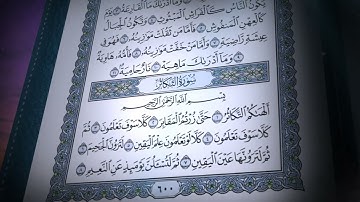 يَكُونُ ٱلنَّاسُ كَٱلْفَرَاشِ ٱلْمَبْثُوثِ ٤ وَتَكُونُ ٱلْجِبَالُ
كَٱلْعِهْنِ ٱلْمَنفُوشِ ٥ فَأَمَّا مَن ثَقُلَتْ مَوَٰزِينُهُۥ ٦ فَهُوَ فِى
عِيشَةٍ رَّاضِيَةٍ ٧ وَأَمَّا مَنْ خَفَّتْ مَوَٰزِينُهُۥ ٨ فَأُمُّهُۥ هَاوِيَةٌ
٩ وَمَآ أَدْرَىٰكَ مَا هِيَهْ ١٠ نَارٌ حَامِيَةٌۢ ١١
سُورَةُ التَّكَاثُرِ
بِسْمِ ٱللَّهِ ٱلرَّحْمَٰنِ ٱلرَّحِيمِ
أَلْهَىٰكُمُ ٱلتَّكَاثُرُ ١ حَتَّىٰ زُرْتُمُ ٱلْمَقَابِرَ ٢ كَلَّا سَوْفَ تَعْلَمُونَ ٣ ثُمَّ
كَلَّا سَوْفَ تَعْلَمُونَ ٤ كَلَّا لَوْ تَعْلَمُونَ عِلْمَ ٱلْيَقِينِ ٥ لَتَرَوُنَّ ٱلْجَحِيمَ ٦
ثُمَّ لَتَرَوُنَّهَا عَيْنَ ٱلْيَقِينِ ٧ ثُمَّ لَتُسْـَٔلُنَّ يَوْمَئِذٍ عَنِ ٱلنَّعِيمِ ٨
٦٠٠